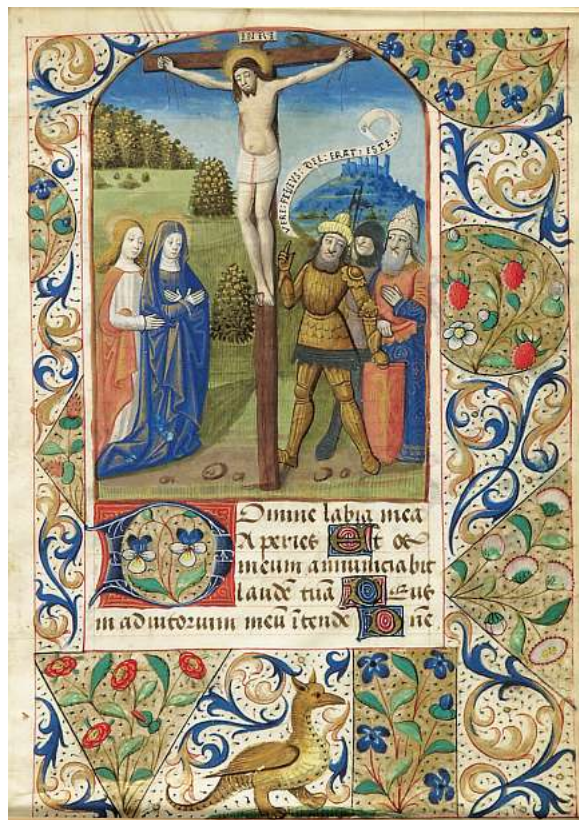 INRI
VERE: FILIUS: DEI: ERAT: ISTE:
Domine labia mea
Aperies Et os
meum annunciabit
laudē tuā Deus
in adiutorium meū ītende Dn̄e